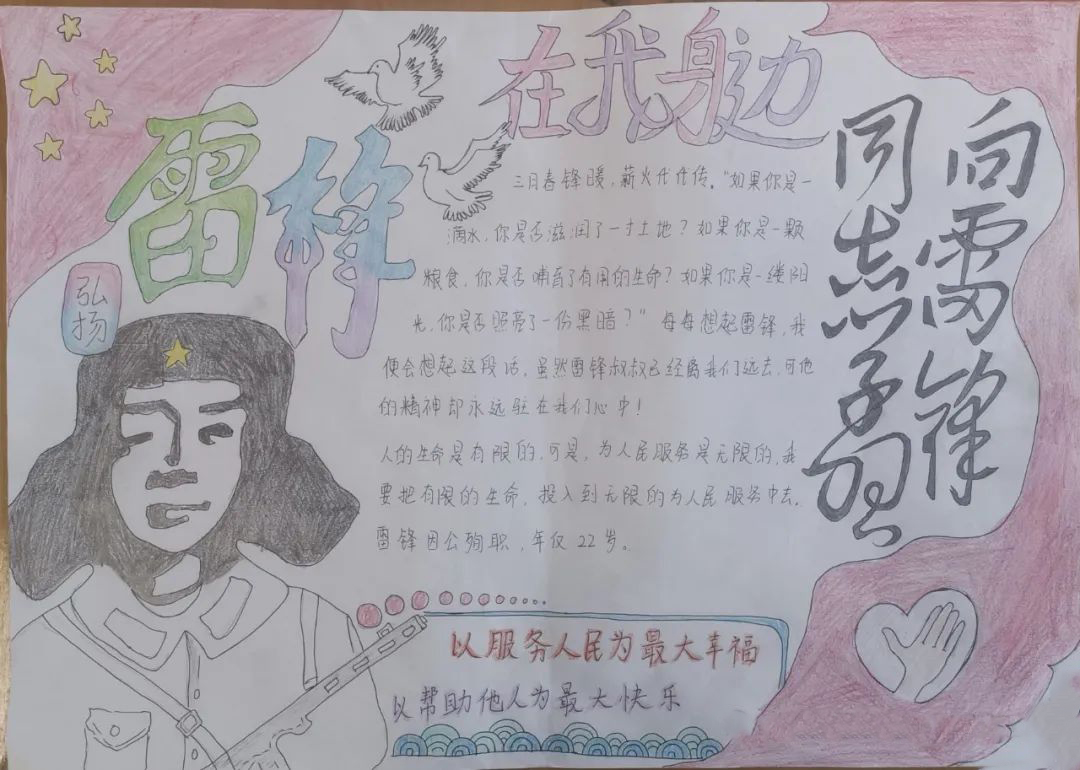 在我身边
雷锋
弘扬
向雷锋
同志学习
三月春锋暖，薪火代代传。“如果你是一
滴水，你是否滋润了一寸土地？如果你是一颗
粮食，你是否哺育了有用的生命？如果你是一缕阳
光，你是否照亮了一份黑暗？”每每想起雷锋，我
便会想起这段话，虽然雷锋叔叔已经离我们远去，可他
的精神却永远驻在我们心中！
人的生命是有限的，可是，为人民服务是无限的，我
要把有限的生命，投入到无限的为人民服务中去。
雷锋因公殉职，年仅22岁。
以服务人民为最大幸福
以帮助他人为最大快乐